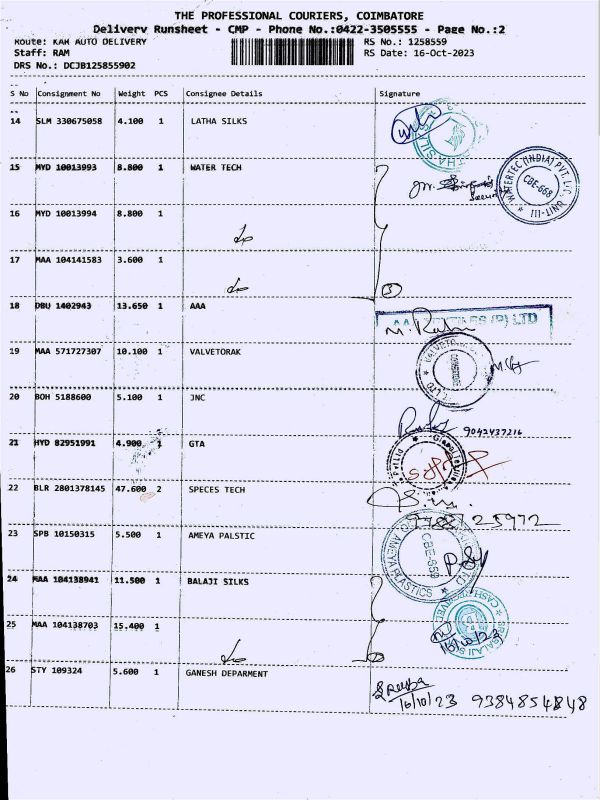 THE PROFESSIONAL COURIERS, COIMBATORE
Delivery Runsheet - CMP - Phone No.:0422-3505555 - Page No.:2
Route: KAR AUTO DELIVERY
RS No.: 1258559
Staff: RAM
RS Date: 16-Oct-2023
DRS No.: DCJB125855902
S No Consignment No Weight PCS Consignee Details Signature
14 SLM 330675058 4.100 1 LATHA SILKS
15 MYD 10013993 8.800 1 WATER TECH
WATERTEC (INDIA) PVT. LTD. UNIT-III
CBE-668
16 MYD 10013994 8.800 1
17 MAA 104141583 3.600 1
3
18 DBU 1402943 13.650 1 AAA
(P) LTD
19 MAA 571727307 10.100 1 VALVETORAK
20 BOH 5188600 5.100 1 JNC
9042437216
21 HYD 82951991 4.900 1 GTA
22 BLR 2801378145 47.600 2 SPECES TECH
23 SPB 10150315 5.500 1 AMEYA PALSTIC
AMEYA PLASTICS
CBE-659
24 MAA 104138941 11.500 1 BALAJI SILKS
25 MAA 104138703 15.400 1
16/10/23
26 STY 109324 5.600 1 GANESH DEPARMENT
16/10/23 9384854848